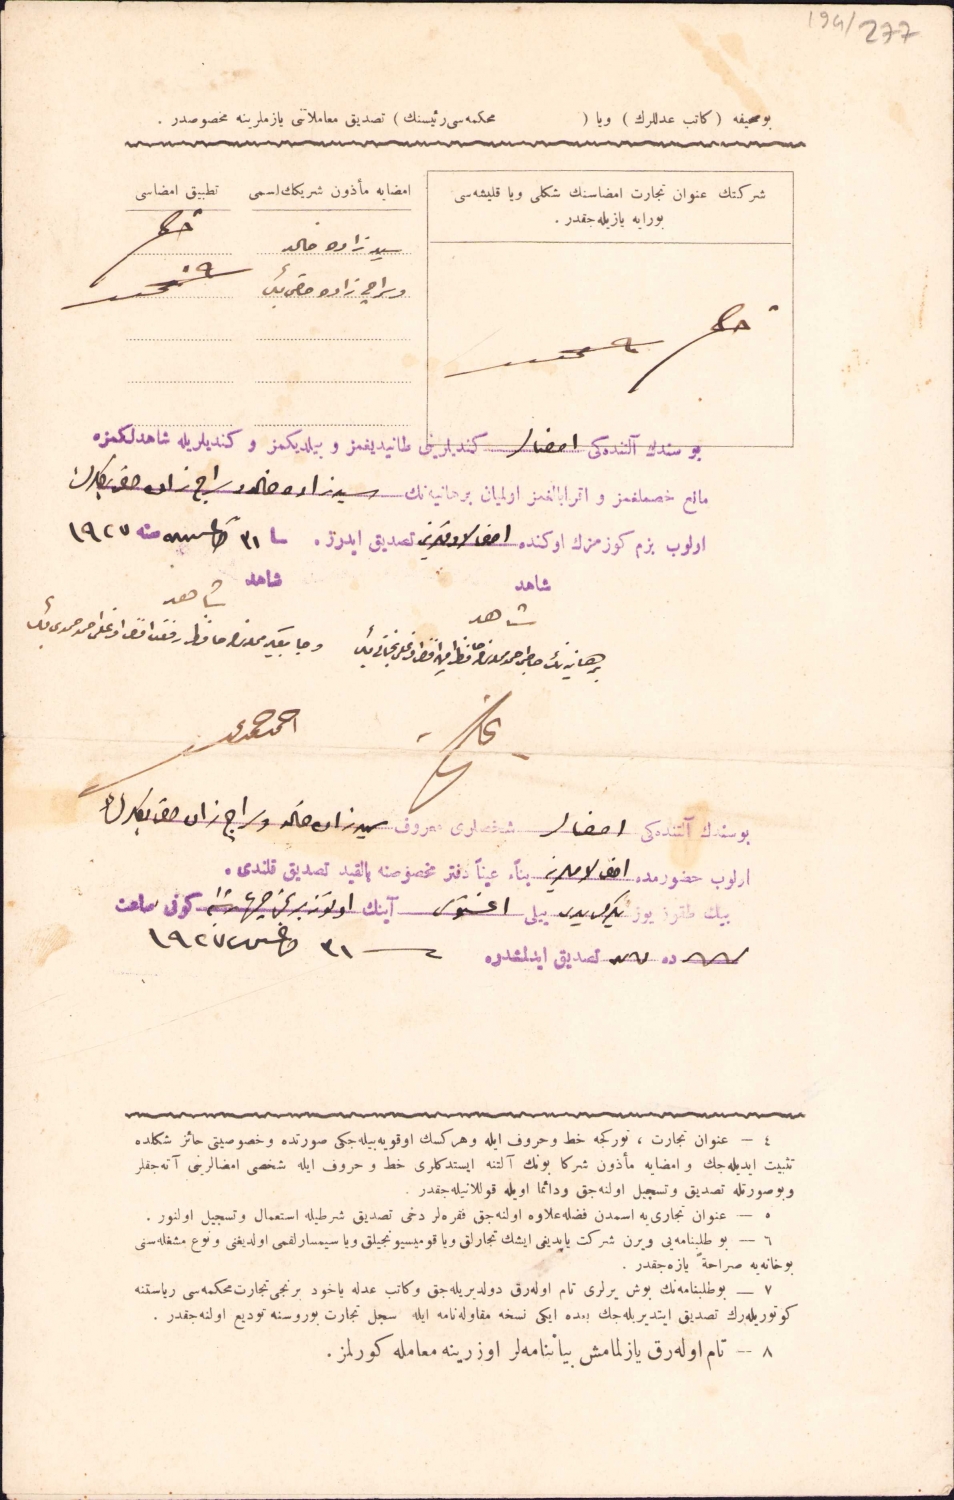 194/277
بوصحيفه (كاتب عدللرك) ويا ( محكمه‌سى رئيسنك) تصديق معاملاتى يازملرينه مخصوصدر .
شركتك عنوان تجارت امضاسنك شكلى ويا قليشه‌سى
بورايه يازيله‌جقدر .
امضايه مأذون شريكك اسمى
تطبيق امضاسى
سيد زاده خالد
زاده حقى بك
بو سندك آلتنده‌كى امضالر كنديلرينى طانيديغمز و بيلديكمز و كنديلريله شاهدلكمزه
مانع خصملغمز و اقربالغمز اولميان برهانيه‌نك سيد زاده خالد و زاده حقى بكلرك
اولوب بزم كوزمزك اوكنده تصديق ايدرز . ٣١ سنه ١٩٢٧
شاهد
شاهد
شاهد
شاهد
بوسندك آلتنده‌كى امضالر شخصلرى معروف سيد زاده خالد و زاده حقى بكلرك
اولوب حضورمده بناءً عيناً دفتر مخصوصنه بالقيد تصديق قلندى .
بيك طقوز يوز يكرمى يدى ييلى اغستوس آينك اوتوز برنجى چهارشنبه كونى ساعت
ده تصديق ايدلمشدر ٣١ ١٩٢٧
٤ — عنوان تجارت ، توركجه خط وحروف ايله وهركسك اوقويه‌بيله‌جكى صورتده وخصوصيتى حائز شكلده
تثبيت ايديله‌جك وامضايه مأذون شركا بونك آلتنه ايستدكلرى خط و حروف ايله شخصى امضالرينى آته‌جقلر
وبوصورتله تصديق وتسجيل اولنه‌جق ودائما اويله قوللانيله‌جقدر .
٥ — عنوان تجارى‌يه اسمدن فضله علاوه اولنه‌جق فقره‌لر دخى تصديق شرطيله استعمال وتسجيل اولنور .
٦ — بو طلبنامه‌يى ويرن شركت ياپديغى ايشك تجارلق ويا قوميسيونجيلق ويا سيمسارلقمى اولديغنى ونوع مشغله‌سنى
بوخانه‌يه صراحةً يازه‌جقدر .
٧ — بوطلبنامه‌نك بوش يرلرى تام اوله‌رق دولديريله‌جق وكاتب عدله ياخود برنجى تجارت محكمه‌سى رياستنه
كوتوريله‌رك تصديق ايتديريله‌جك بعده ايكى نسخه مقاوله‌نامه ايله سجل تجارت بوروسنه توديع اولنه‌جقدر .
٨ — تام اوله‌رق يازلمامش بياننامه‌لر اوزرينه معامله كورلمز .